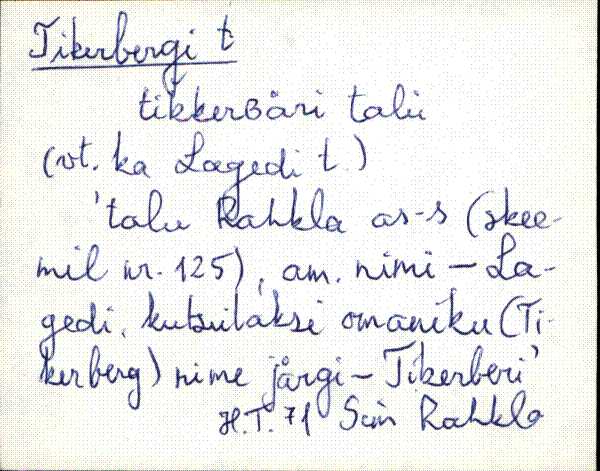 Tikerbergi t
tikkerʙäri talu
(vt. ka Lagedi t.)
'talu Rahkla as-s (skee-
mil nr. 125), am. nimi – La-
gedi, kutsutakse omaniku (Ti-
kerberg) nime järgi – Tikerberi'
H.T. 71 Sim Rahkla